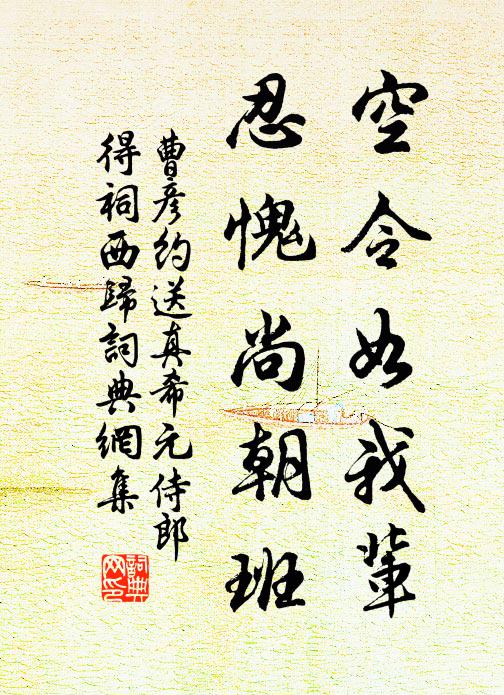 空令如我輩
忍愧尚朝班
曹彥約送真希元侍郎
得祠西歸詞典網集
詞典
网印